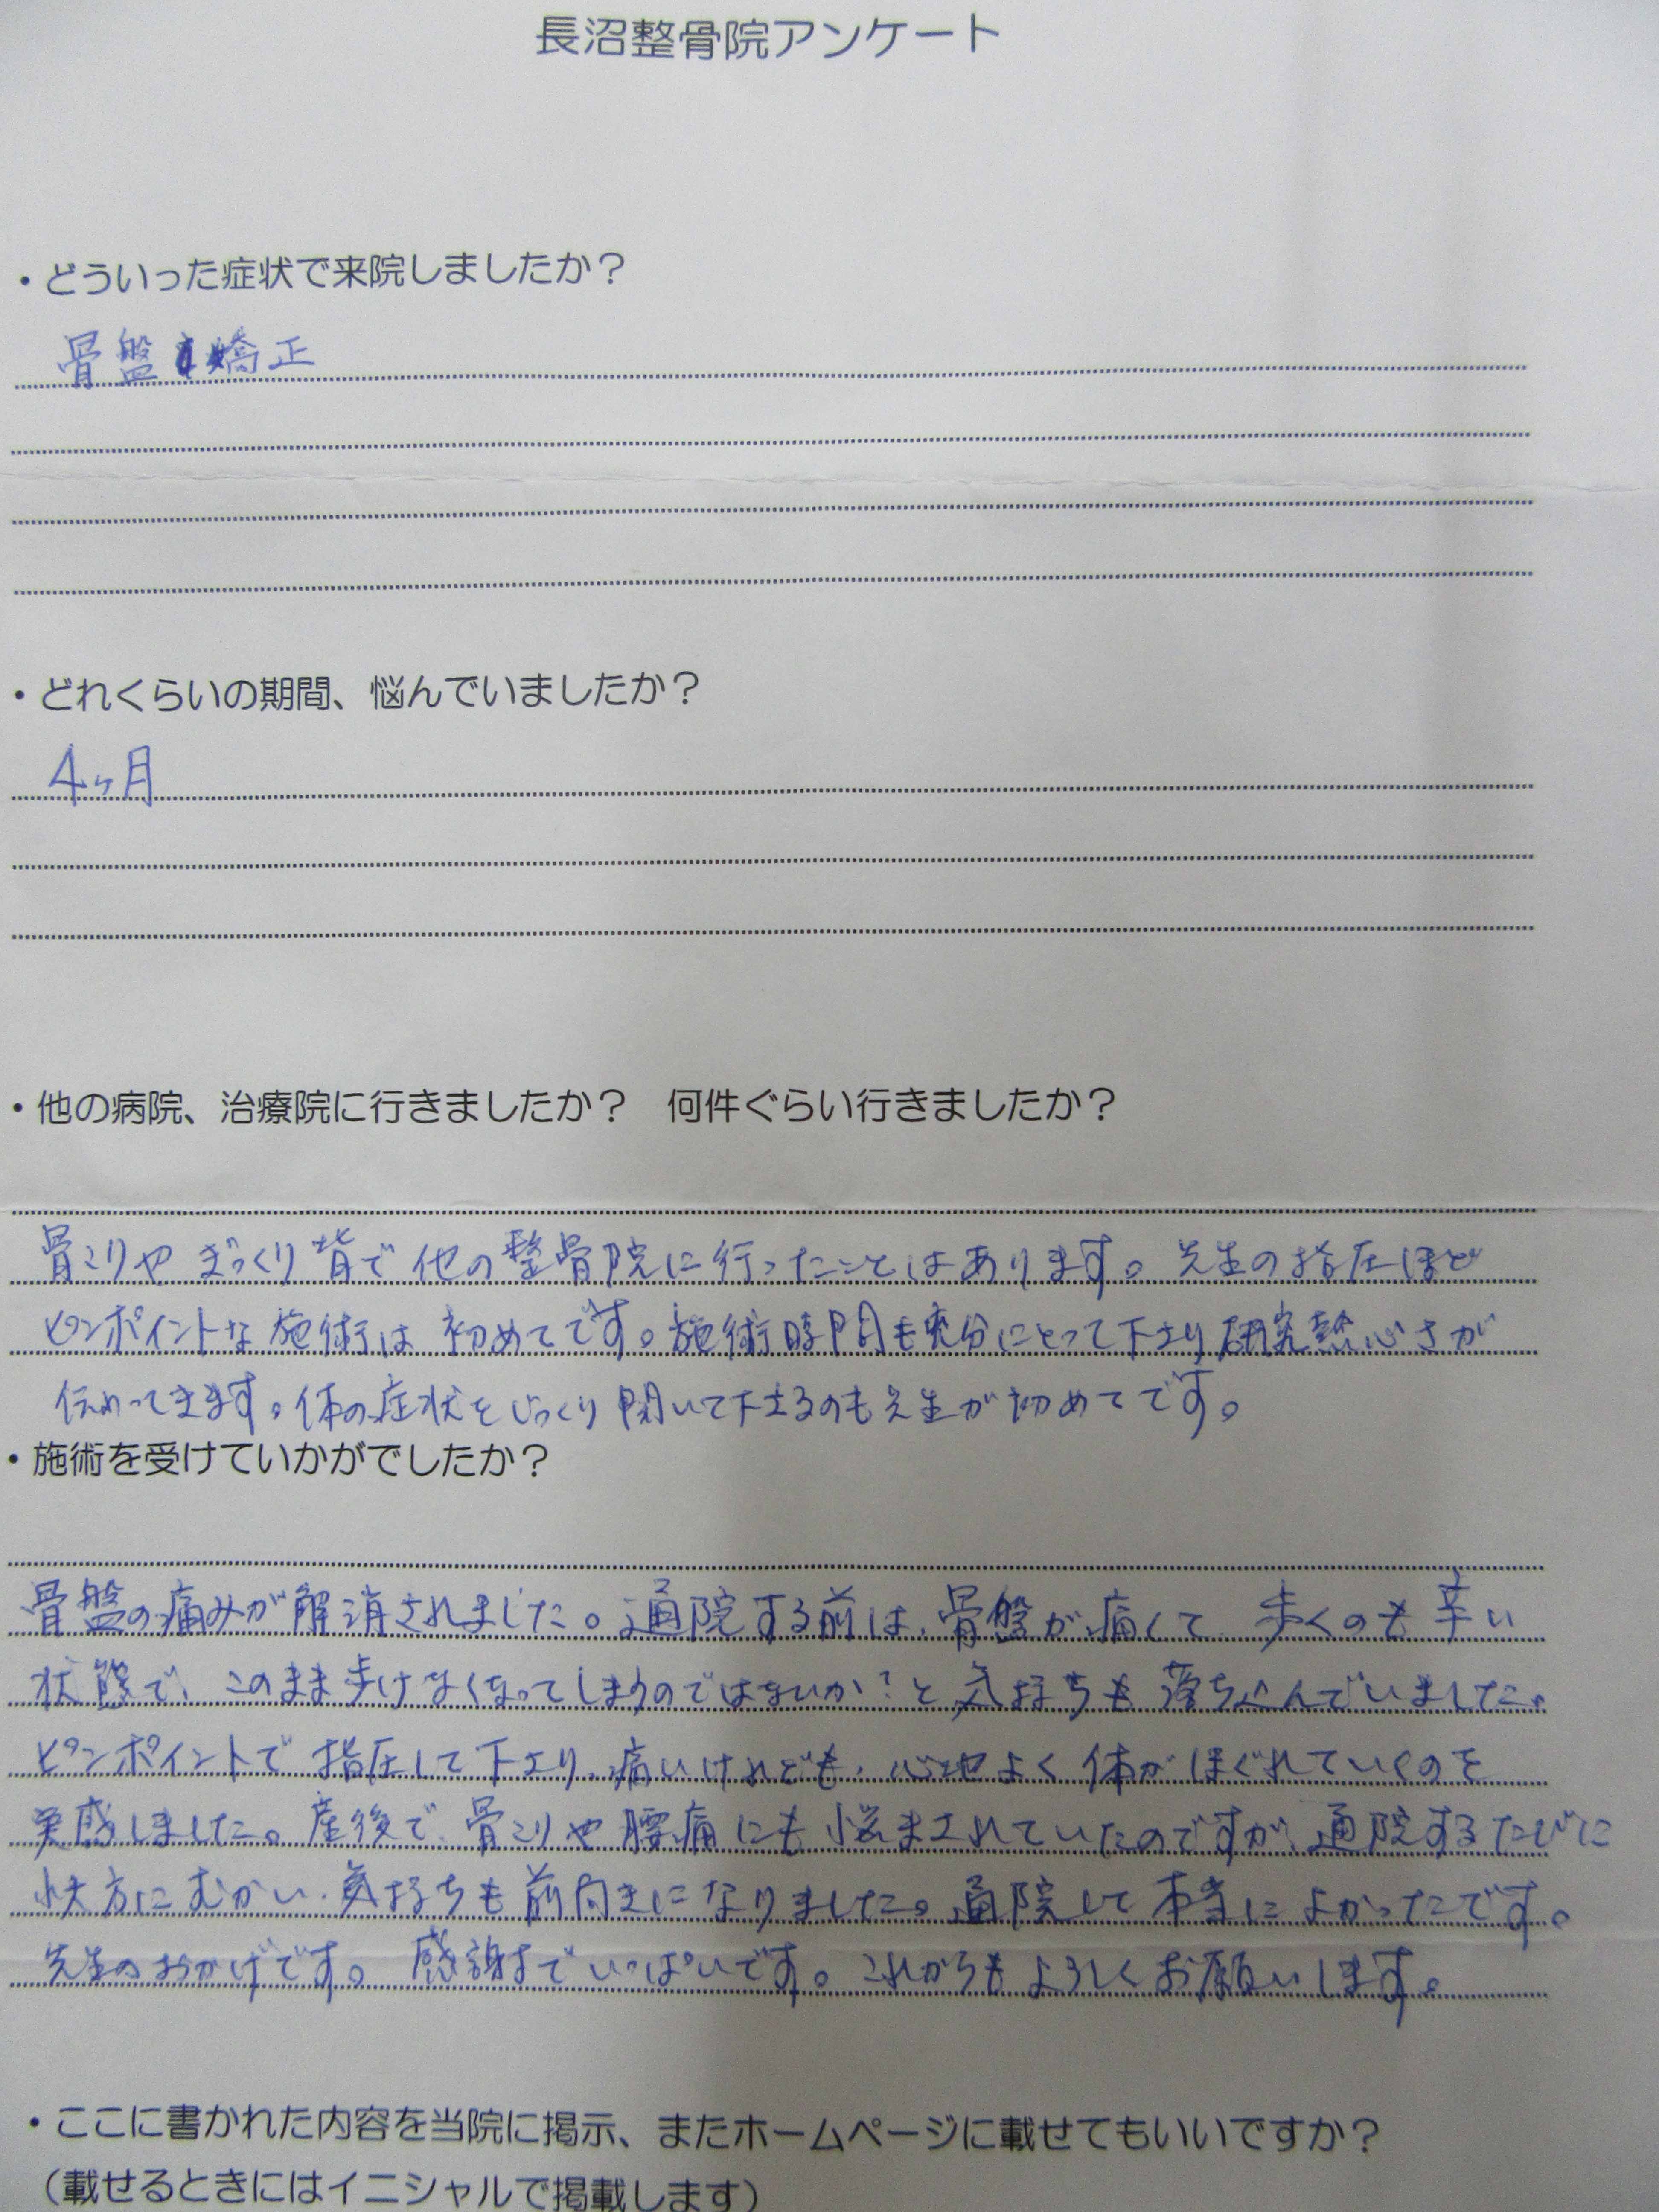 長沼整骨院アンケート
・どういった症状で来院しましたか？
骨盤矯正
・どれくらいの期間、悩んでいましたか？
4ヶ月
・他の病院、治療院に行きましたか？　何件ぐらい行きましたか？
骨こりや ぎっくり背で 他の整骨院に行ったことはあります。先生の指圧ほど
ピンポイントな施術は 初めてです。施術時間も充分にとって下さり研究熱心さが
伝わってきます。体の症状をじっくり聞いて下さるのも先生が初めてです。
・施術を受けていかがでしたか？
骨盤の痛みが解消されました。通院する前は、骨盤が痛くて、歩くのも辛い
状態で、このまま歩けなくなってしまうのではないか？と気持ちも落ち込んでいました。
ピンポイントで指圧して下さり、痛いけれども、心地よく体がほぐれていくのを
実感しました。産後で、骨こりや腰痛にも悩まされていたのですが、通院するたびに
快方にむかい、気持ちも前向きになりました。通院して本当によかったです。
先生のおかげです。感謝でいっぱいです。これからもよろしくお願いします。
・ここに書かれた内容を当院に掲示、またホームページに載せてもいいですか？
（載せるときにはイニシャルで掲載します）